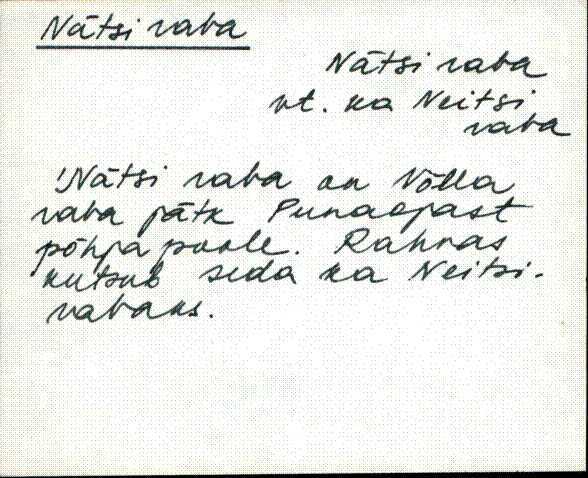 Nätsi raba
Nätsi raba
vt. ka Neitsi
raba
'Nätsi raba on Võlla
raba jätk Punaojast
põhja poole. Rahvas
kutsub seda ka Neitsi-
rabaks.